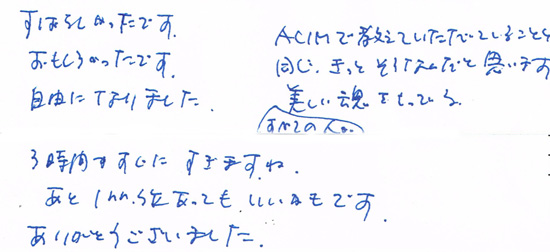 すばらしかったです。
おもしろかったです。
自由になりました。
ACIMで教えていただいていることと
同じ。きっとそうなんだと思います
美しい魂をもっている。
すべての人が
3時間もすぐにすぎますね。
あと1hn.くらいあっても、いいかもです。
ありがとうございました。